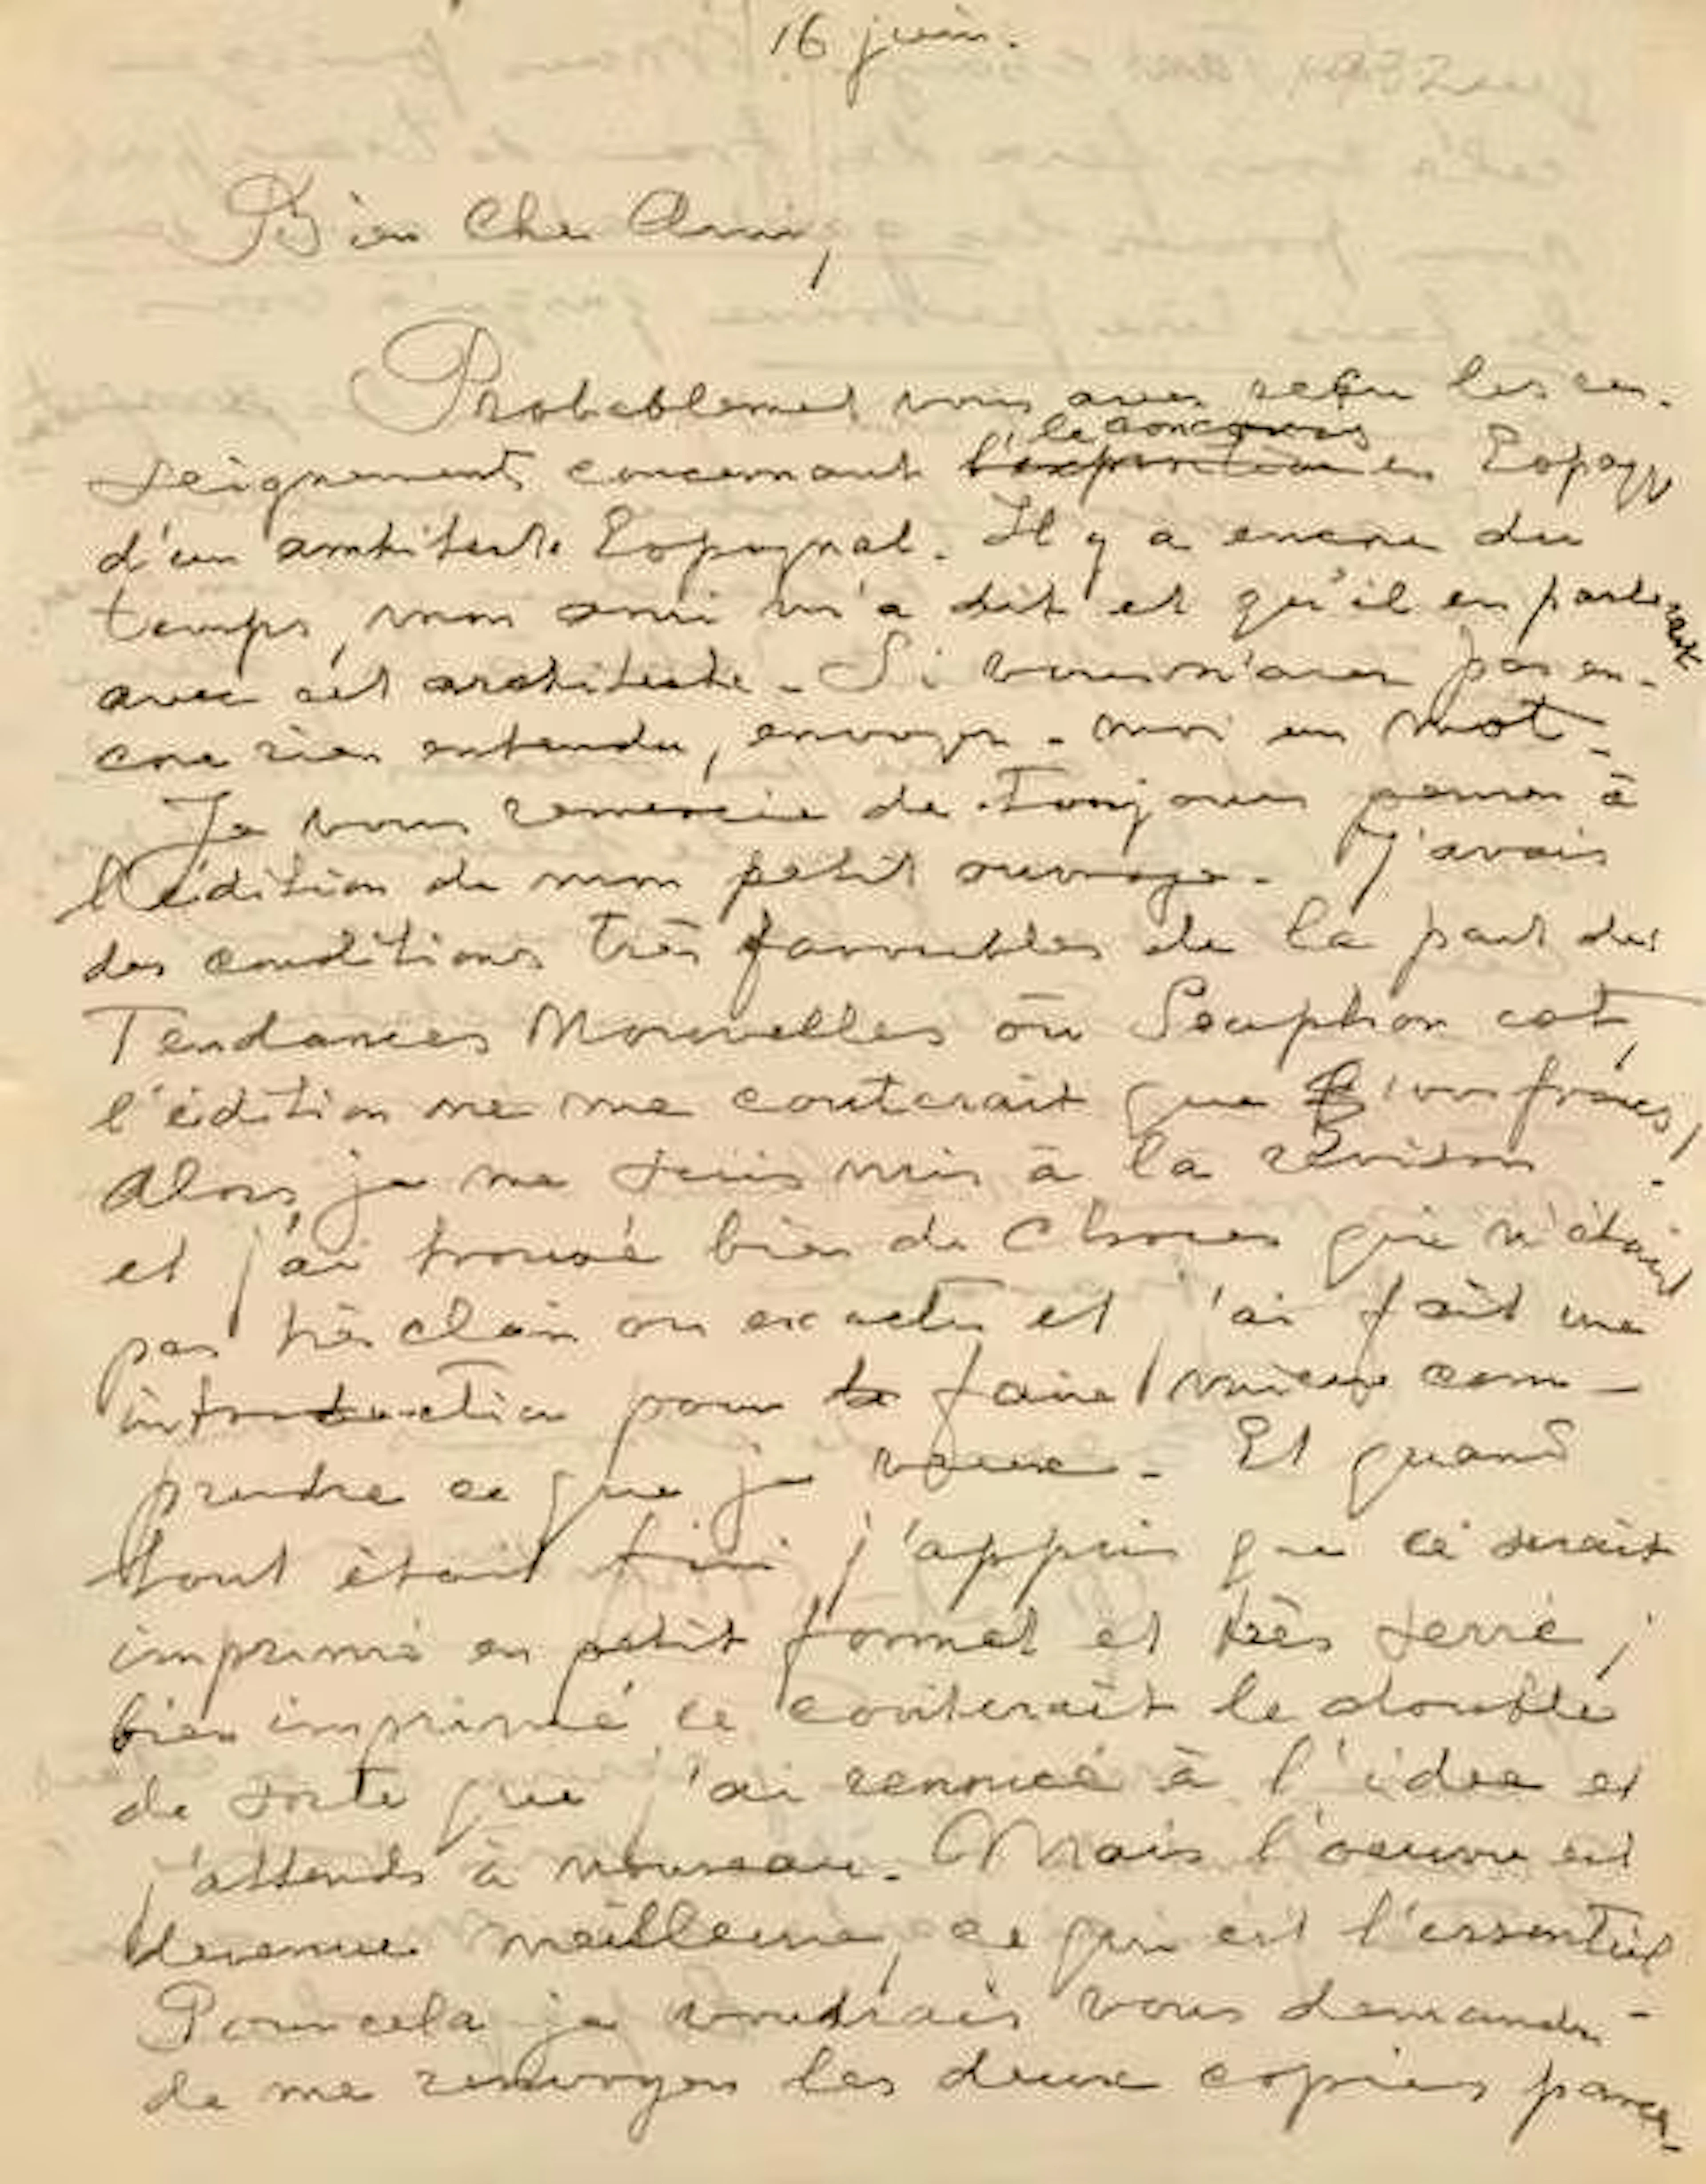 16 juin.
Bien Cher Ami,
Probablement vous avez reçu les ren-
seignements concernant l'exposition le concours en Espagne
d'un architecte Espagnol. Il y a encore du
temps, mon ami m'a dit et qu'il en parlerait
avec cet architecte. Si vous n'avez pas en-
core rien entendu, envoyez-moi un mot.
Je vous remercie de toujours penser à
l'édition de mon petit ouvrage. J'avais
des conditions très favorables de la part des
Tendances Nouvelles où Seuphor est,
l'édition ne me couterait que francs,
Alors je me suis mis à la révison
et j'ai trouvé bien de choses qui n'était
pas très clair ou exactes et j'ai fait une
introduction pour faire mieux com-
prendre ce que je veux. Et quand
tout était fini j'appris que ce serait
imprimé en petit format et très serré;
bien imprimé ce couterait le double
de sorte que j'ai renoncé à l'idée et
j'attends à nouveau. Mais l'oeuvre est
devenue meilleure, ce qui est l'essentiel
Pour cela je voudrais vous demander
de me renvoyer les deux copies parce-